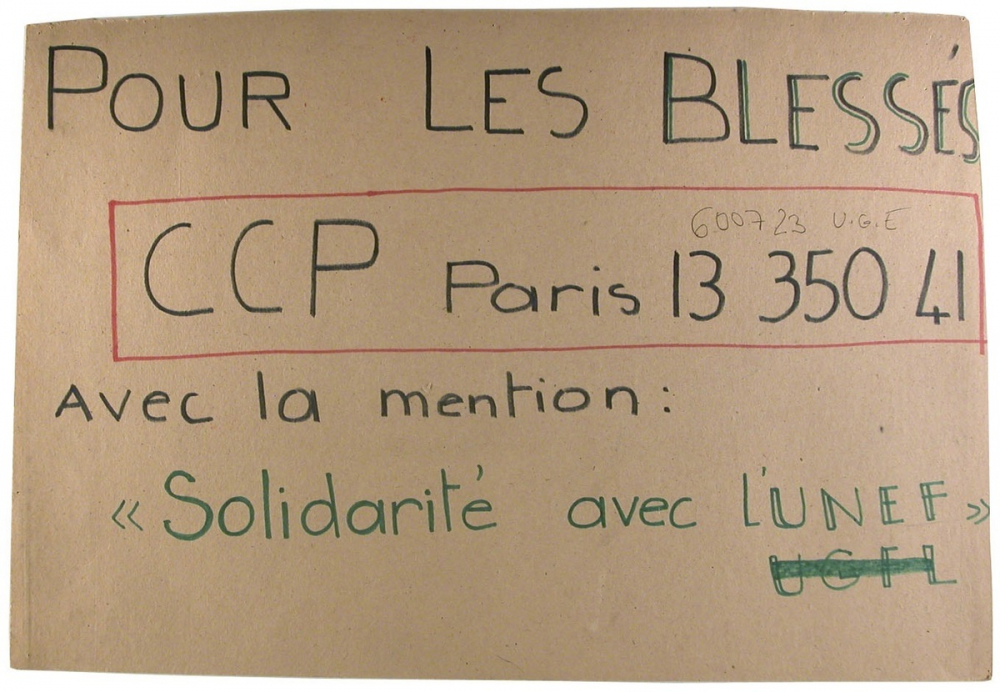 POUR LES BLESSÉS
600723 U.G.E
CCP Paris 13 350 41
Avec la mention :
« Solidarité avec L'UNEF »
UGFL